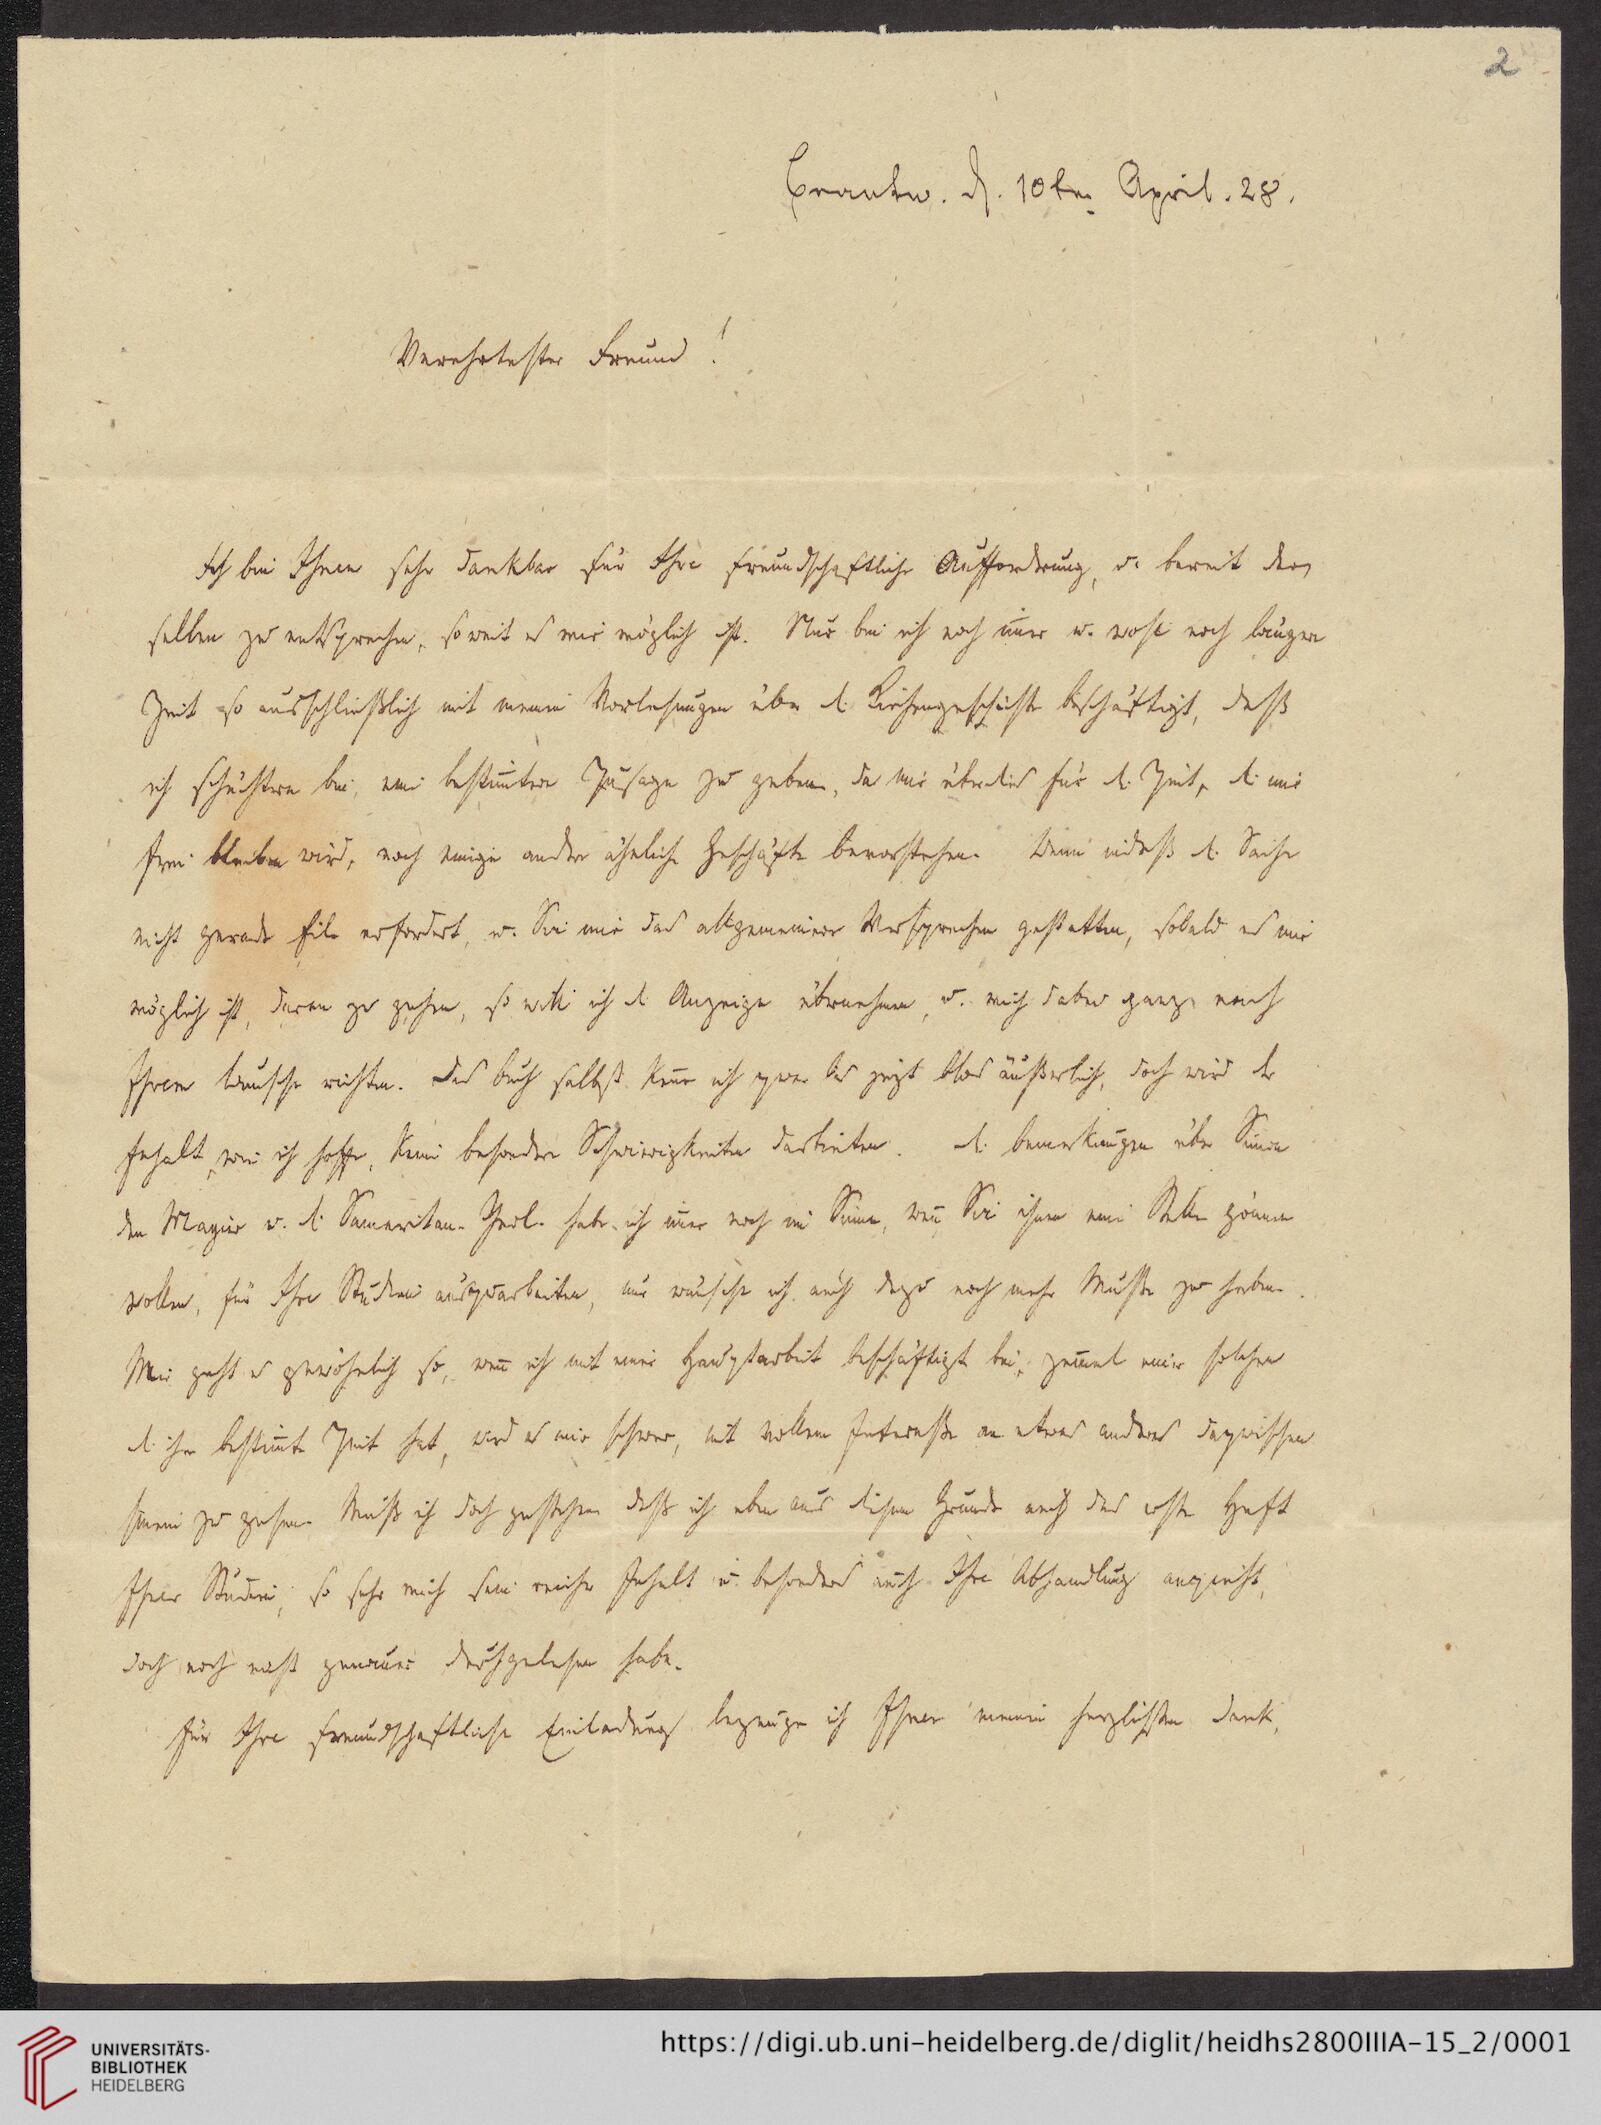 2
d. 10ten April. 28.
Verehrtester Freund!
Ich bin Ihnen sehr dankbar für Ihre freundschaftliche Aufforderung, u. bereit der-
selben zu entsprechen, soweit es mir möglich ist. Nur bin ich noch im̄er u. wohl noch längere
Zeit so ausschließlich mit meinen Vorlesungen über d. Kirchengeschichte beschäftigt, daß
ich schüchtern bin, eine bestim̄tere Zusage zu geben, da mir überdies für d. Zeit, d. mir
frei bleiben wird, noch einige andere ähnliche Geschäfte bevorstehen. Wenn indeß d. Sache
nicht gerade Eile erfordert, u. Sie mir das allgemeinere Versprechen gestatten, sobald es mir
möglich ist, daran zu gehen, so will ich d. Anzeige übernehmen, u. mich dabei ganz nach
Ihrem Wunsche richten. Das Buch selbst ken̄e ich zwar bis jezt blos äußerlich, doch wird der
Inhalt, wie ich hoffe, keine besondere Schwierigkeiten darbieten. d. Bemerkungen über Simon
den Magier u. d. Samaritan. Theol. habe ich im̄er noch im Sinne, wen̄ Sie ihnen eine Stelle gönnen
wollen, für Ihre Studien auszuarbeiten, nur wünsche ich auch dazu noch mehr Muße zu haben.
Mir geht es gewöhnlich so, wen̄ ich mit einer Hauptarbeit beschäftigt bin, zumal einer solchen
d. ihre bestim̄te Zeit hat, wird es mir schwer, mit vollem Interesse an etwas anderes dazwischen
hinein zu gehen. Muß ich doch gestehen daß ich eben aus diesem Grunde auch das erste Heft
Ihrer Studien, so sehr mich sein reicher Inhalt u. besonders auch Ihre Abhandlung anzieht,
doch noch nicht genauer durchgelesen habe.
Für Ihre freundschaftliche Einladung bezeuge ich Ihnen meinen herzlichsten Dank,
UNIVERSITÄTS-
BIBLIOTHEK
HEIDELBERG
https://digi.ub.uni-heidelberg.de/diglit/heidhs2800IIIA-15_2/0001